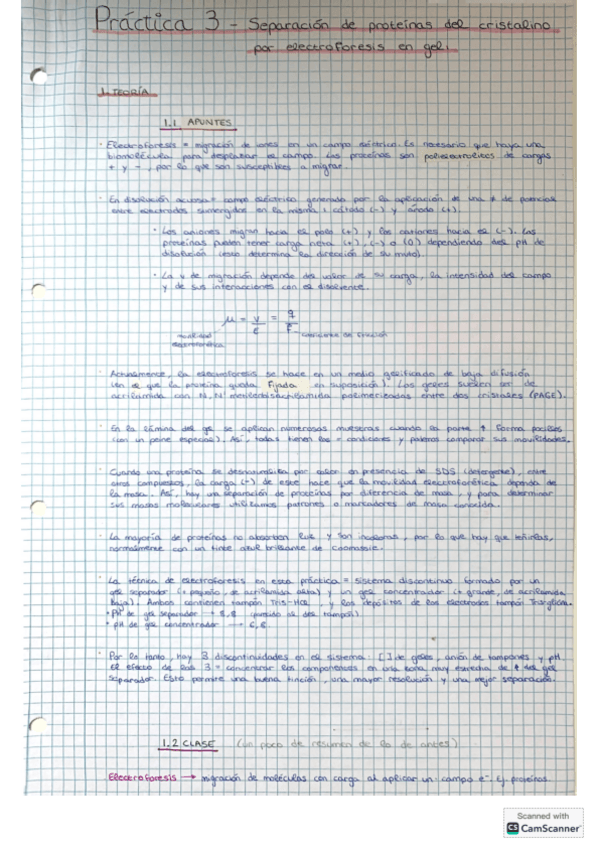 Práctica 3 - Separación de proteínas del cristalino
por electroforesis en gel.
1. TEORÍA
1.1 APUNTES
· Electroforesis = migración de iones en un campo eléctrico. Es necesario que haya una
biomolécula para desplazar el campo. Las proteínas son polielectrolitos de cargas
+ y -, por lo que son susceptibles a migrar.
· En disolución acuosa = campo eléctrico generado por la aplicación de una de potencial
entre electrodos sumergidos en la misma: cátodo (-) y ánodo (+).
· Los aniones migran hacia el polo (+) y los cationes hacia el (-). Las
proteínas pueden tener carga neta (+), (-) o (0) dependiendo del pH de
disolución (esto determina la dirección de su mvto).
· La v de migración depende del valor de su carga, la intensidad del campo
y de sus interacciones con el disolvente.
μ = v/E = q/F
movilidad electroforética
coeficiente de fricción
· Actualmente, la electroforesis se hace en un medio gelificado de baja difusión
(en el que la proteína queda Fijada en su posición). Los geles suelen ser de
acrilamida con N,N' metilenbisacrilamida polimerizadas entre dos cristales (PAGE).
· En la lámina del gel se aplican numerosas muestras cuando la parte ↑ forma pocillos
(con un peine especial). Así, todas tienen las = condiciones y podemos comparar sus movilidades.
· Cuando una proteína se desnaturaliza por calor en presencia de SDS (detergente), entre
otros compuestos, la carga (-) de este hace que la movilidad electroforética dependa de
la masa. Así, hay una separación de proteínas por diferencia de masa, y para determinar
sus masas moleculares utilizamos patrones o marcadores de masa conocida.
· La mayoría de proteínas no absorben luz y son incoloras, por lo que hay que teñirlas,
normalmente con un tinte azul brillante de Coomassie.
· La técnica de electroforesis en esta práctica = sistema discontinuo formado por un
gel separador (+ pequeño, de acrilamida alta) y un gel concentrador (+ grande, de acrilamida
baja). Ambos contienen tampón Tris-HCl, y los depósitos de los electrodos tampón Trisglicina.
· pH de gel separador → 8,8
· pH de gel concentrador → 6,8
· Por lo tanto, hay 3 discontinuidades en el sistema: [] de geles, anión de tampones y pH.
El efecto de las 3 = concentrar los componentes en una zona muy estrecha de del gel
separador. Esto permite una buena tinción, una mayor resolución y una mejor separación.
1.2 CLASE (un poco de resumen de lo de antes)
Electroforesis → migración de moléculas con carga al aplicar un campo e⁻. Ej. proteínas
Scanned with
CS CamScanner